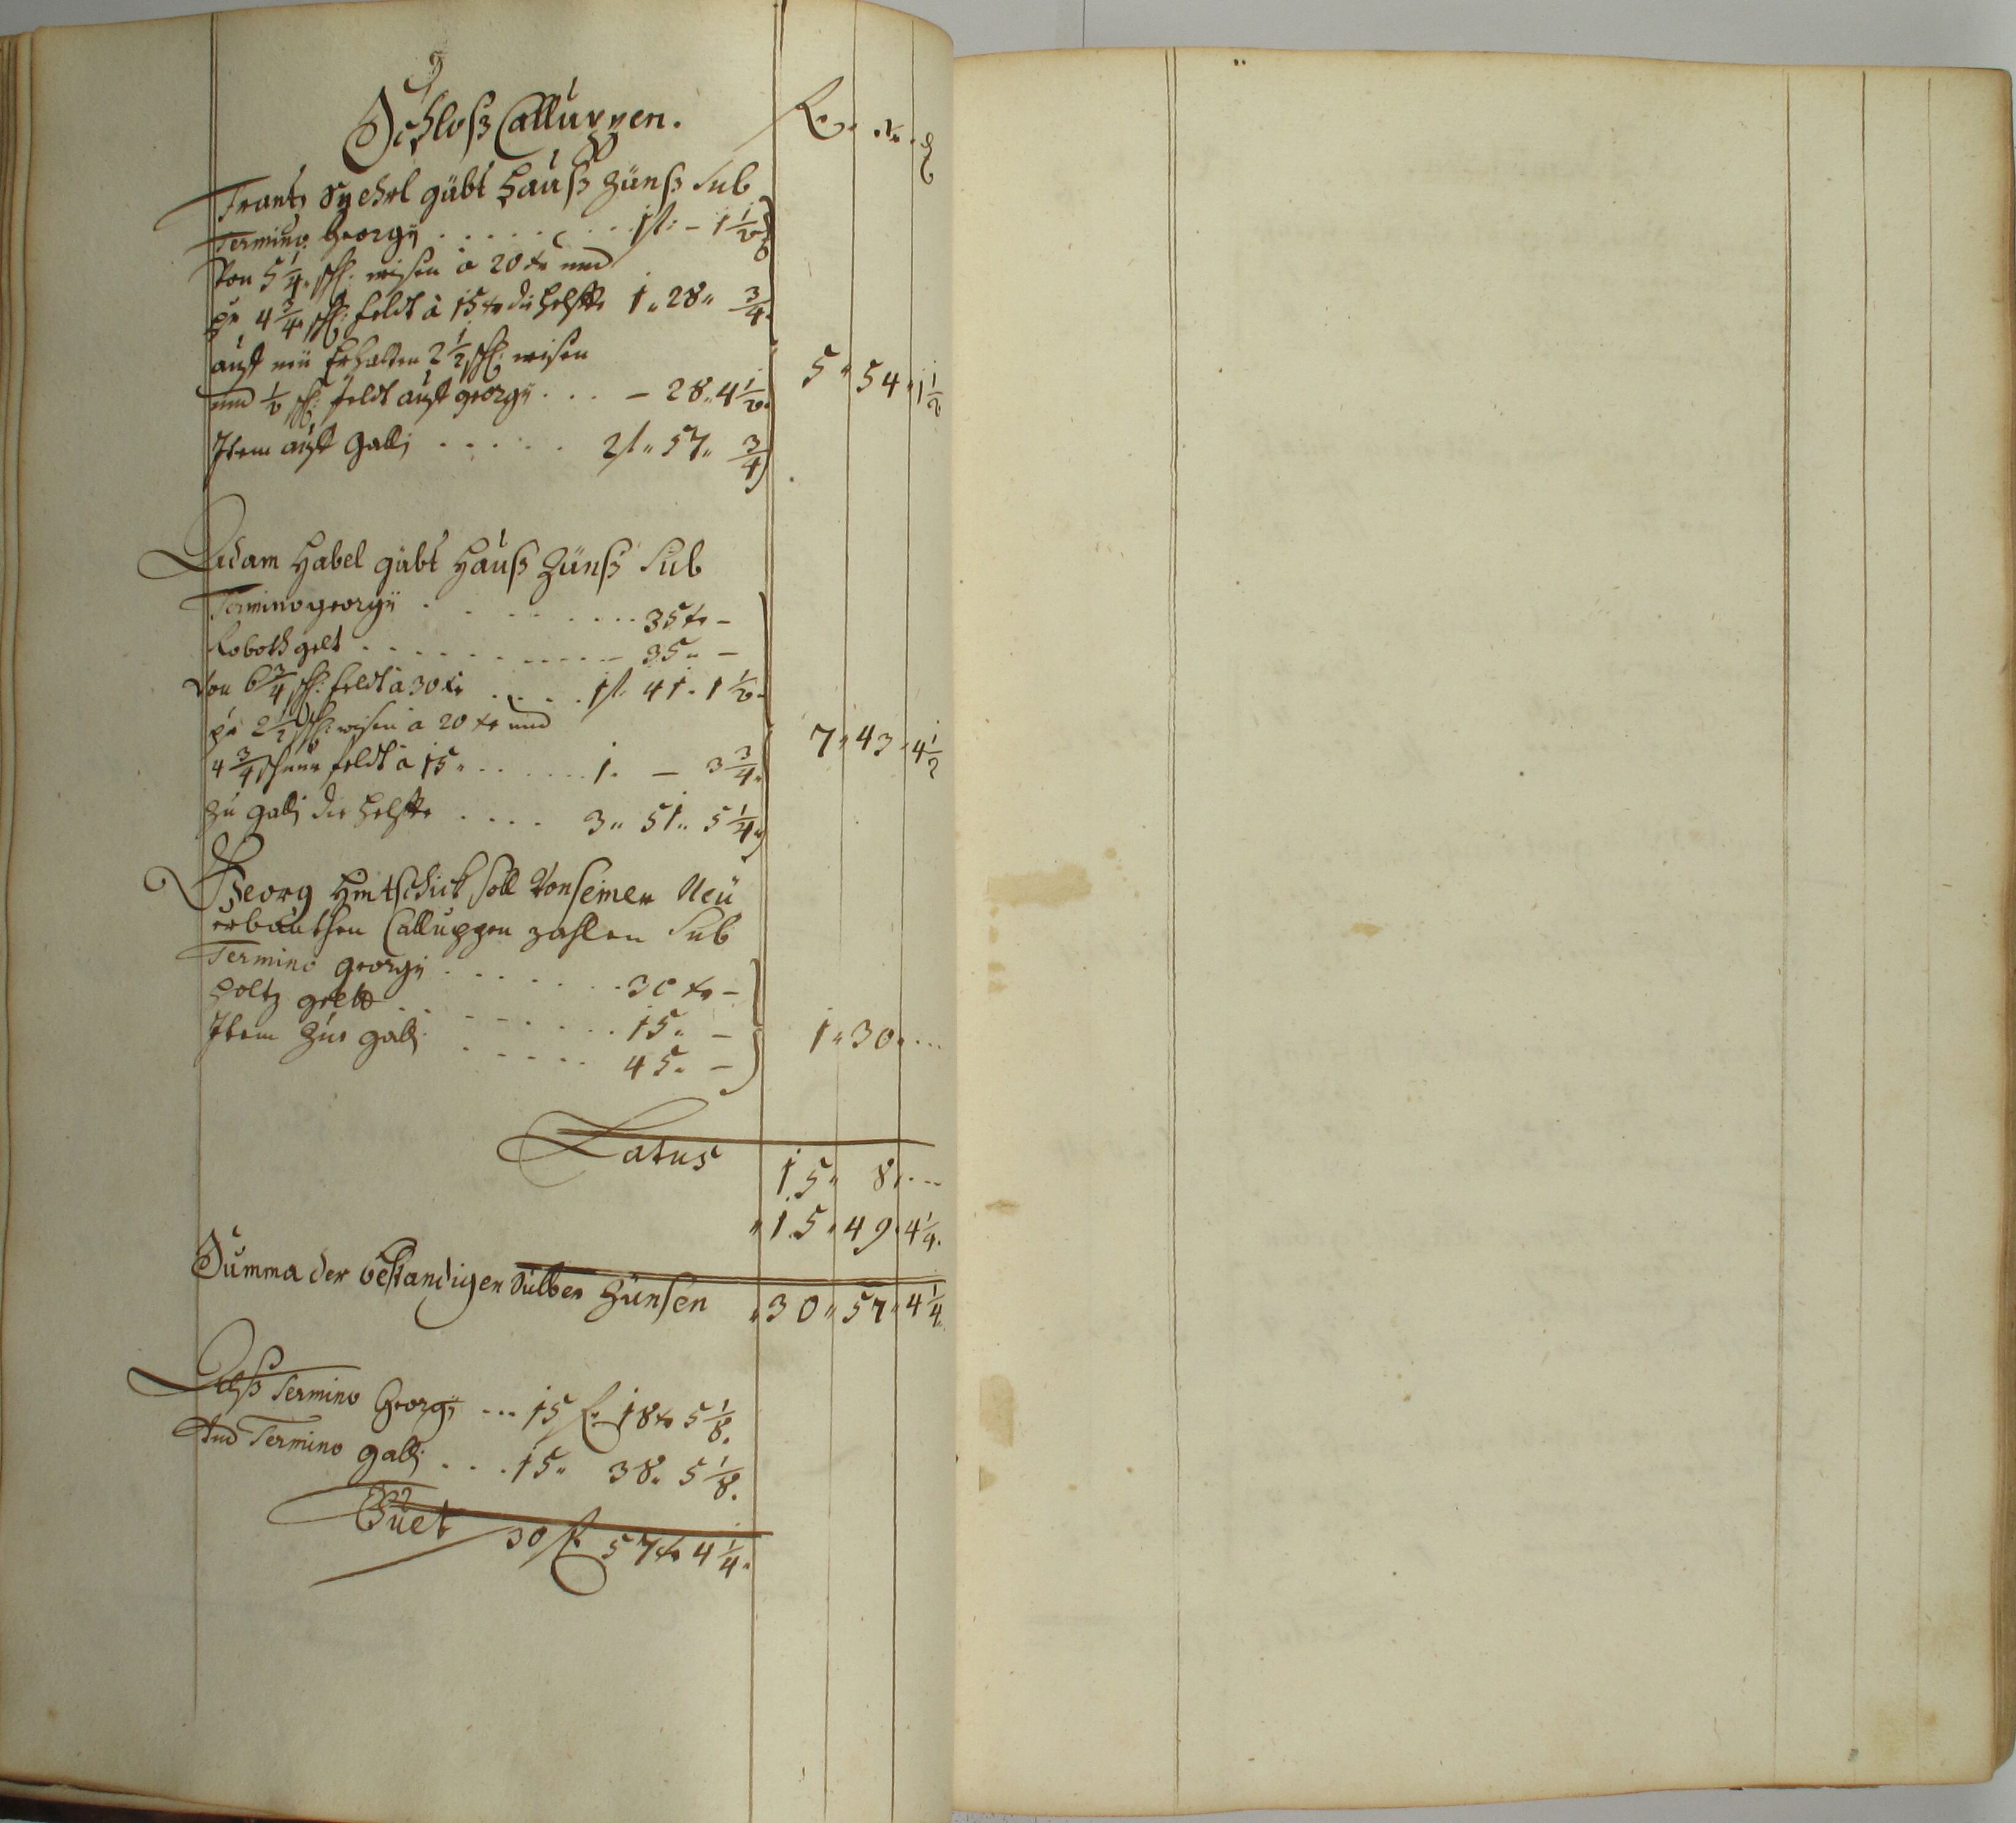 Schloß Calluppen.
fl. xr. ₰
Frantz Syehrl gübt Hauß Zünß Sub
Termino Georgÿ . . . . . . . . 1 fl: – 1 1/2
Von 5 1/4 sch: wisen a 20 xr und
pr 4 3/4 sch: feldt à 15 xr die helfte 1 " 28 " 3/4
auff neü Erhalten 2 1/2 sch: wisen
und 1/2 sch: feldt auff georgÿ . . . – 28 " 4 1/2 5 " 54 " 1 1/2
Item auff Galli . . . . . . 2 fl " 57 " 3/4
Adam Habel gübt Hauß Zünß Sub
Termino georgÿ . . . . . . . . 35 xr –
Roboth gelt . . . . . . . . . . 35 " –
Von 6 3/4 sch: feldt à 30 xr . . . . 1 fl: 41 " 1 1/2
pr 2 1/2 sch: wisen a 20 xr und
4 3/4 feldt à 15 " . . . . . . 1 " – 3 3/4 7 " 43 " 4 1/2
Zu Galli die helfte . . . . 3 " 51 " 5 1/4
Georg soll Von seiner Neü
erbauthen Calluppen zahlen Sub
Termino georgÿ . . . . . . . 30 xr –
Holtz gelt . . . . . . . . . 15 " –
Item Zue Galli . . . . . . 45 " – 1 " 30 " ...
Latus 15 " 8 " ...
" 15 " 49 " 4 1/4
Summa der bestandigen Silber Zünsen " 30 " 57 " 4 1/4
Alß Termino Georgÿ ... 15 fl 18 xr 5 1/8.
Und Termino Galli . . . 15 " 38 " 5 1/8.
Thuet 30 fl 57 xr 4 1/4.